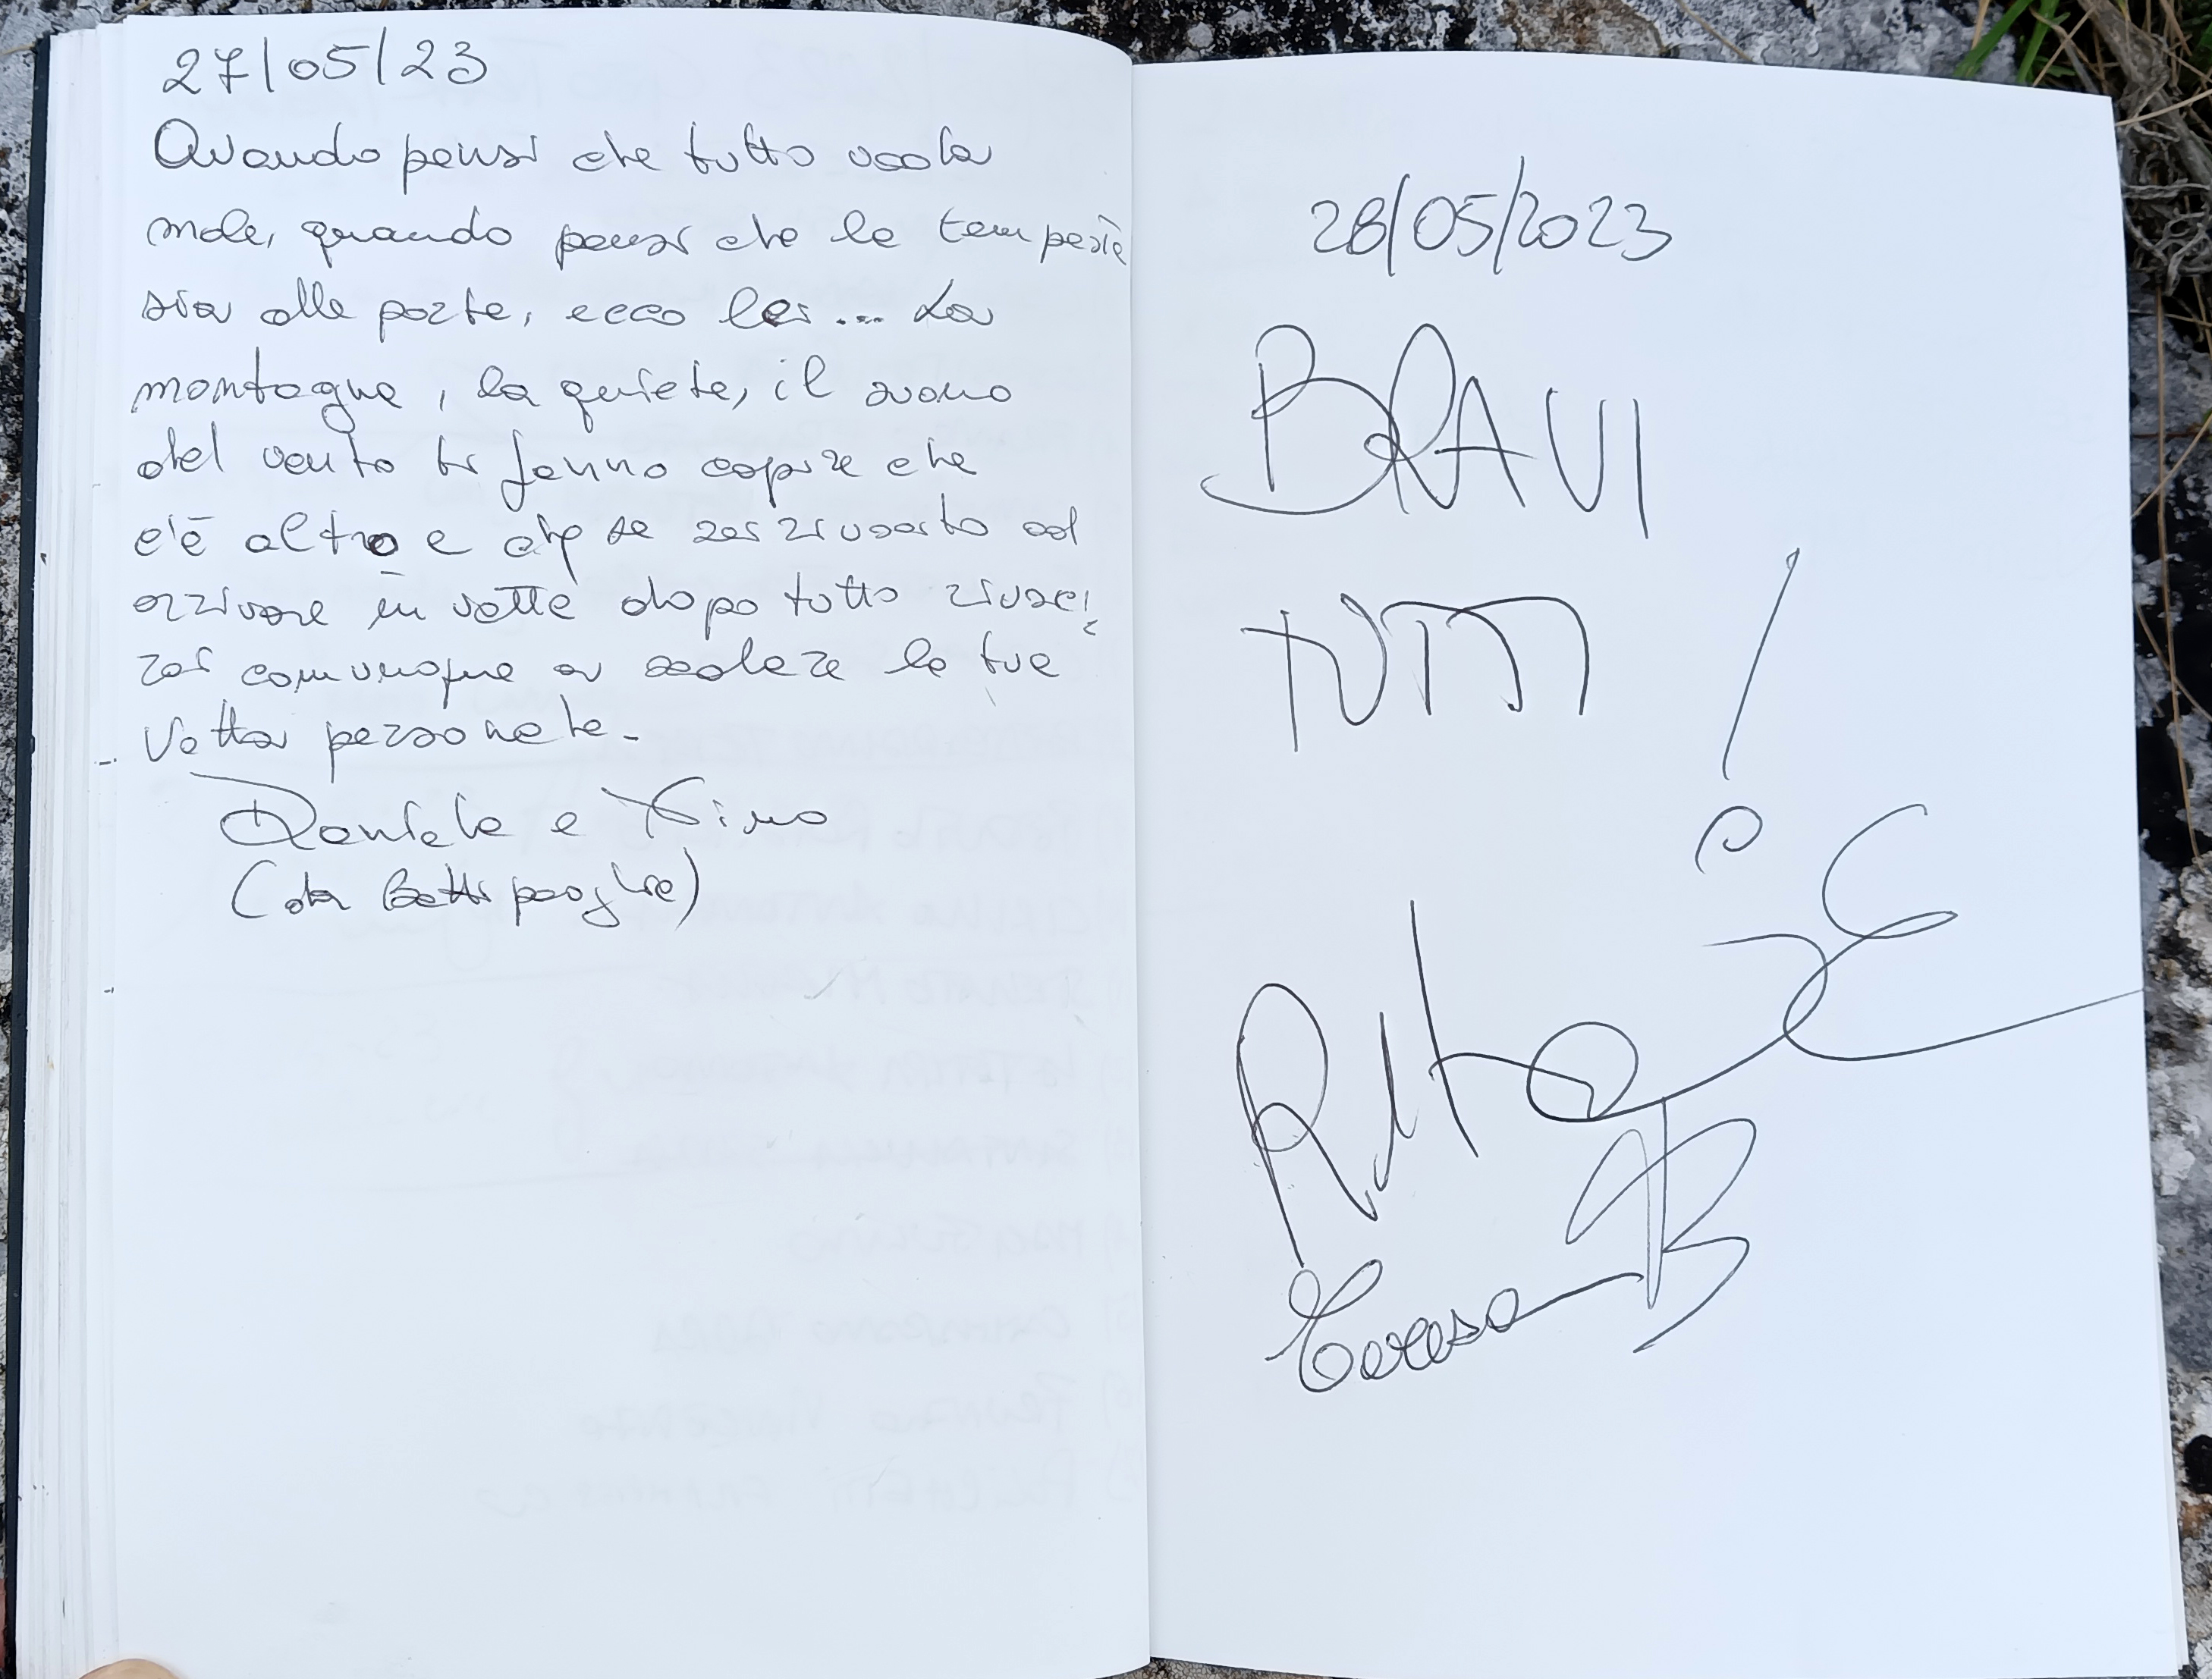 27/05/23
Quando pensi che tutto vada
male, quando pensi che la tempesta
sia alle porte, ecco lei... La
montagna, la quiete, il suono
del vento ti fanno capire che
c'è altro e che se sei riuscito ad
arrivare in vetta dopo tutto riusci
rai comunque a scalare la tua
vetta personale.
Daniele e Nino
(da Battipaglia)
28/05/2023
BRAVI
TUTTI!
Rita
Teresa B